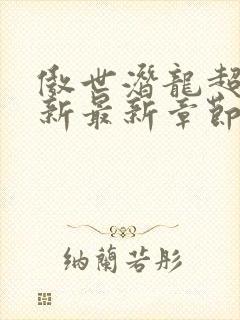 傲世潛龍超
新最新章節
納蘭若彤